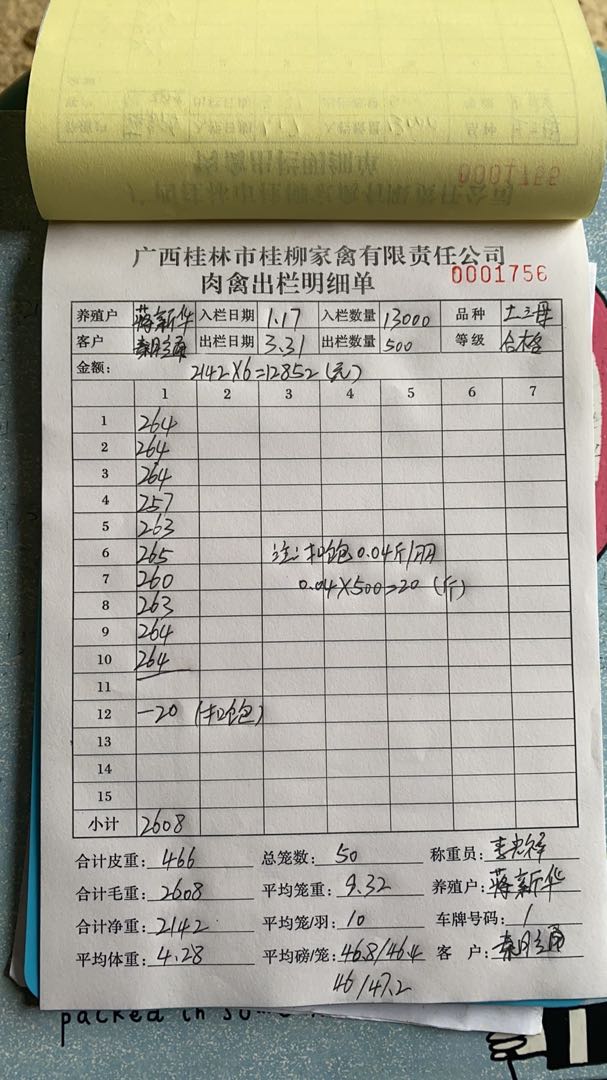 0001755
广西桂林市桂柳家禽有限责任公司
肉禽出栏明细单 0001756
养殖户 蒋新华 入栏日期 1.17 入栏数量 13000 品种 土三母
客户 出栏日期 3.31 出栏数量 500 等级 合格
金额: 2142×6=12852(元)
1 2 3 4 5 6 7
1 264
2 264
3 264
4 257
5 263
6 265 注:扣饱0.04斤/羽
7 260 0.04×500=20(斤)
8 263
9 264
10 264
11
12 -20 (扣饱)
13
14
15
小计 2608
合计皮重: 466 总笼数: 50 称重员:
合计毛重: 2608 平均笼重: 9.32 养殖户: 蒋新华
合计净重: 2142 平均笼/羽: 10 车牌号码: /
平均体重: 4.28 平均磅/笼: 46.8/46.4 客户:
46/47.2
packed in